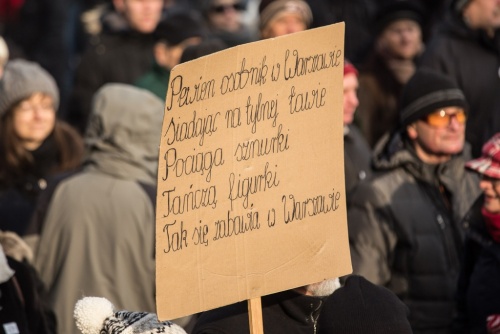 Pewien osobnik w Warszawie
siadając na tylnej ławie
Pociąga sznurki
Tańczą figurki
Tak się zabawia w Warszawie